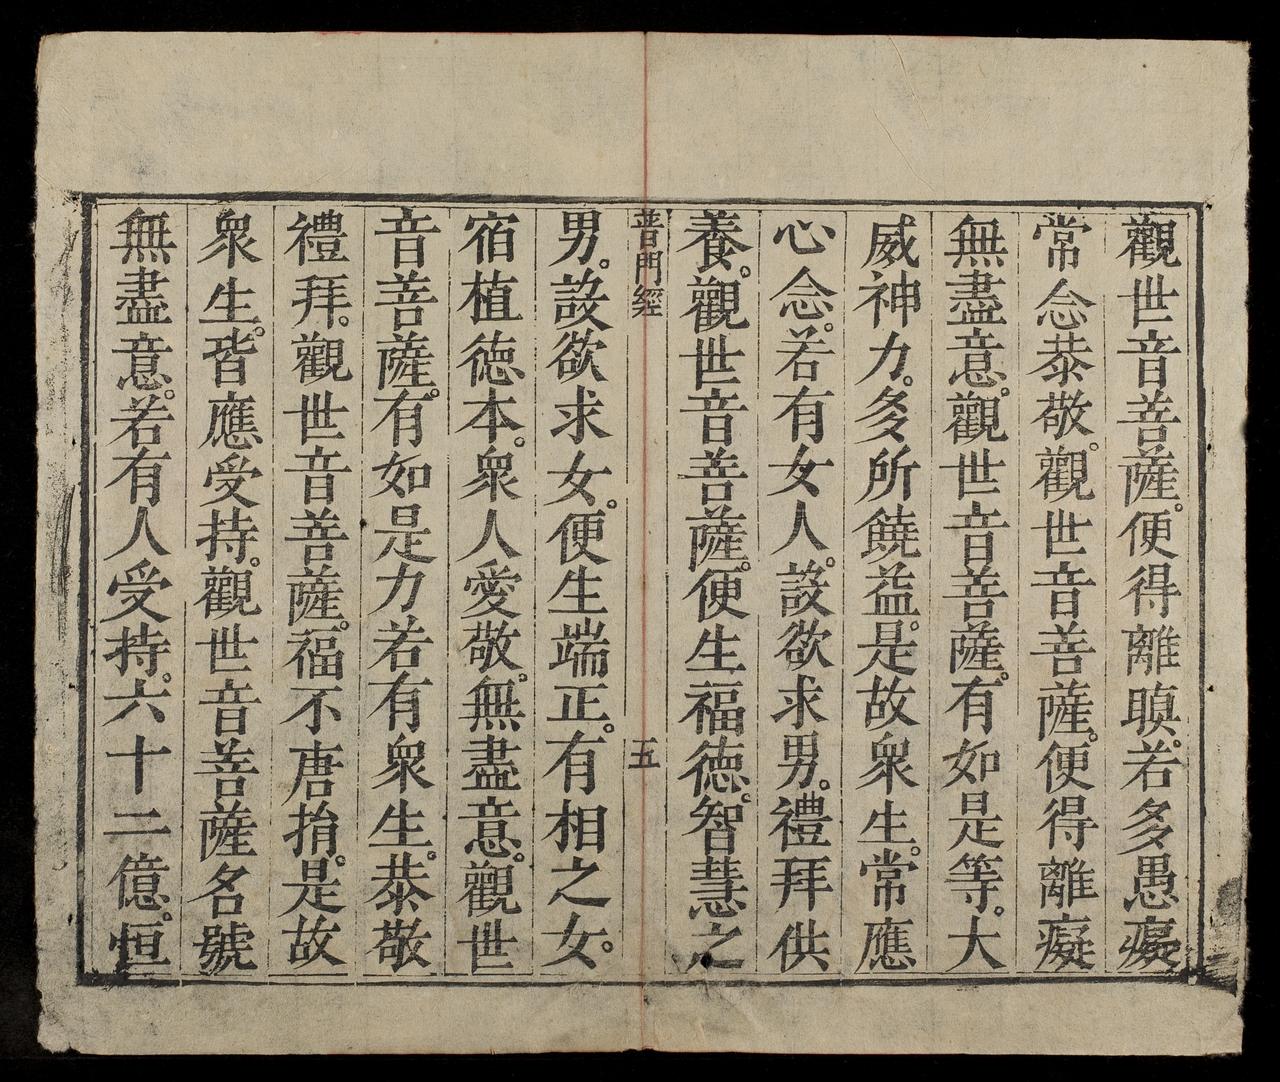 觀世音菩薩。便得離瞋。若多愚癡
常念恭敬。觀世音菩薩。便得離癡
無盡意。觀世音菩薩。有如是等。大
威神力。多所饒益。是故衆生。常應
心念。若有女人。設欲求男。禮拜供
養。觀世音菩薩。便生福德。智慧之
普門經
五
男。設欲求女。便生端正。有相之女。
宿植德本。衆人愛敬。無盡意。觀世
音菩薩。有如是力若有衆生。恭敬
禮拜。觀世音菩薩。福不唐捐。是故
衆生。皆應受持。觀世音菩薩名號
無盡意。若有人受持。六十二億。恒